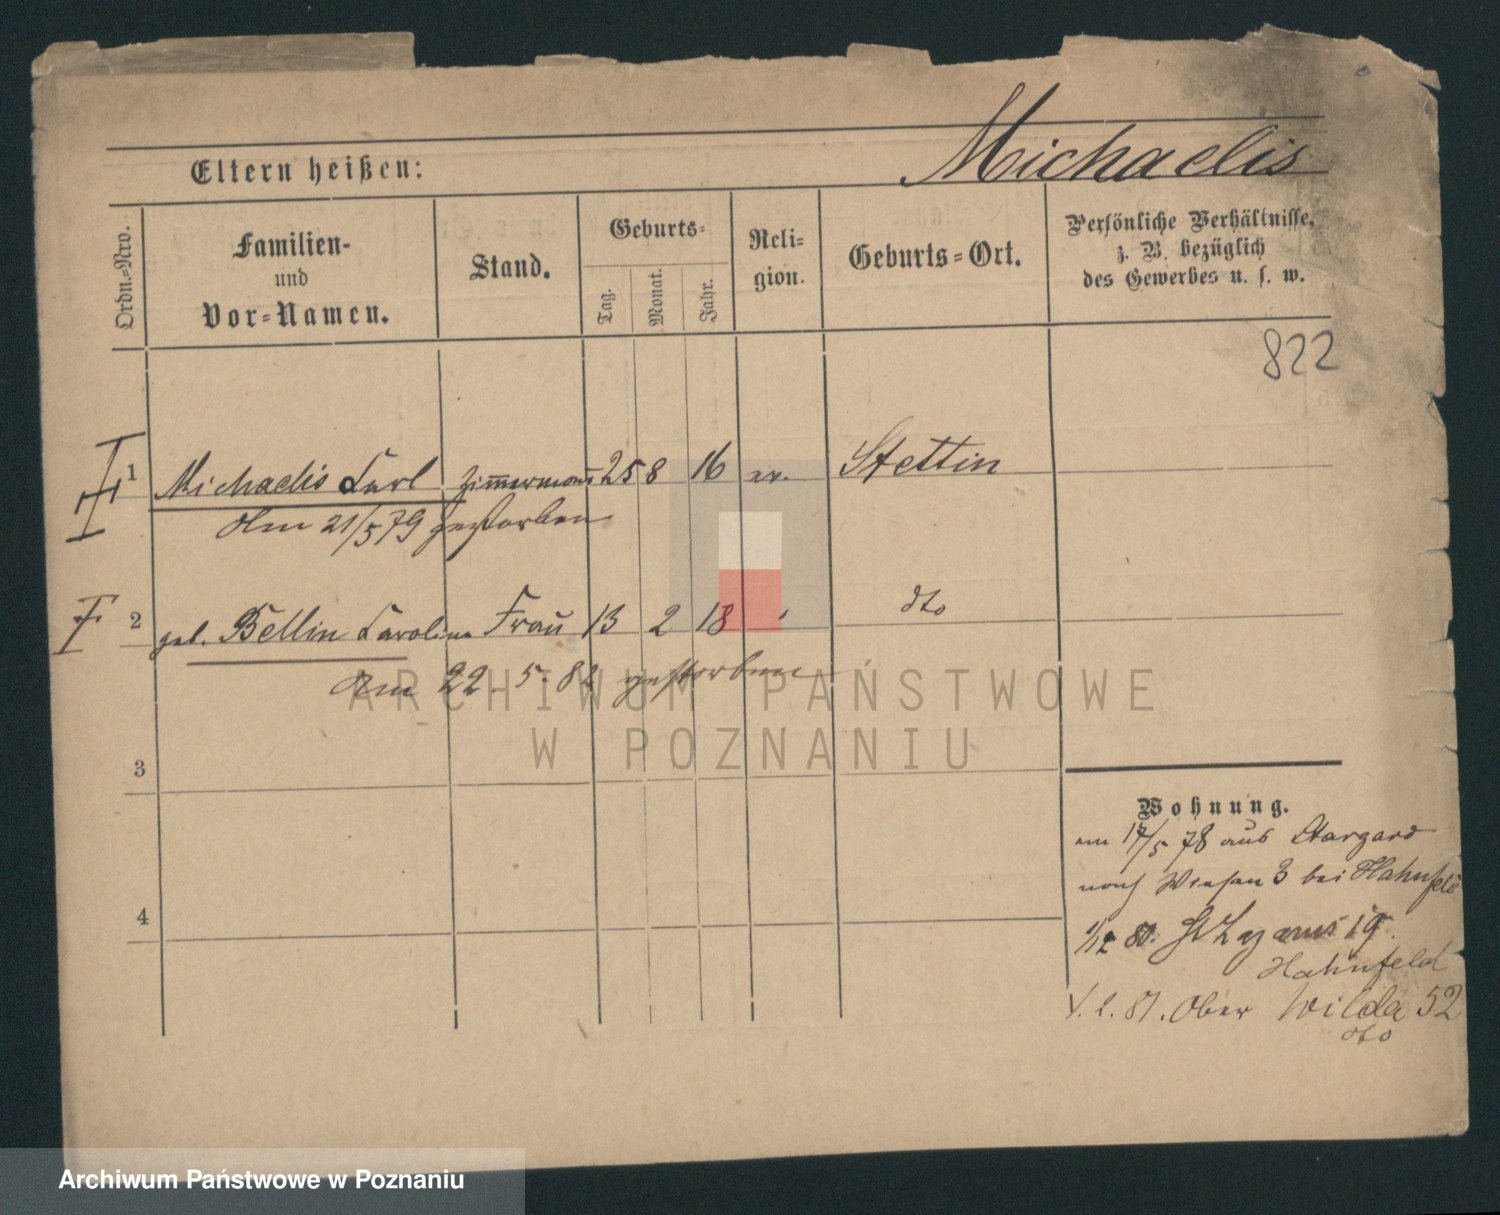 Michaelis
Eltern heißen:
Ordn.-Nro.
Familien-
und
Vor-Namen.
Stand.
Geburts-
Tag.
Monat.
Jahr.
Reli-
gion.
Geburts-Ort.
Persönliche Verhältnisse,
z. B. bezüglich
des Gewerbes u. s. w.
822
1 Michaelis Carl Zimmermann 25 8 16 ev. Stettin
Am 21/5 79 gestorben
2 geb. Bellin Caroline Frau 13 2 18 " dto
Am 22. 5. 82 gestorben
ARCHIWUM PAŃSTWOWE
W POZNANIU
3
4
Wohnung.
am 17/5 78 aus Stargard
nach Wiesen 3 bei Hahnfeld
1/12 80. St Lazarus 19
Hahnfeld
81. Ober Wilda 52
dto
Archiwum Państwowe w Poznaniu